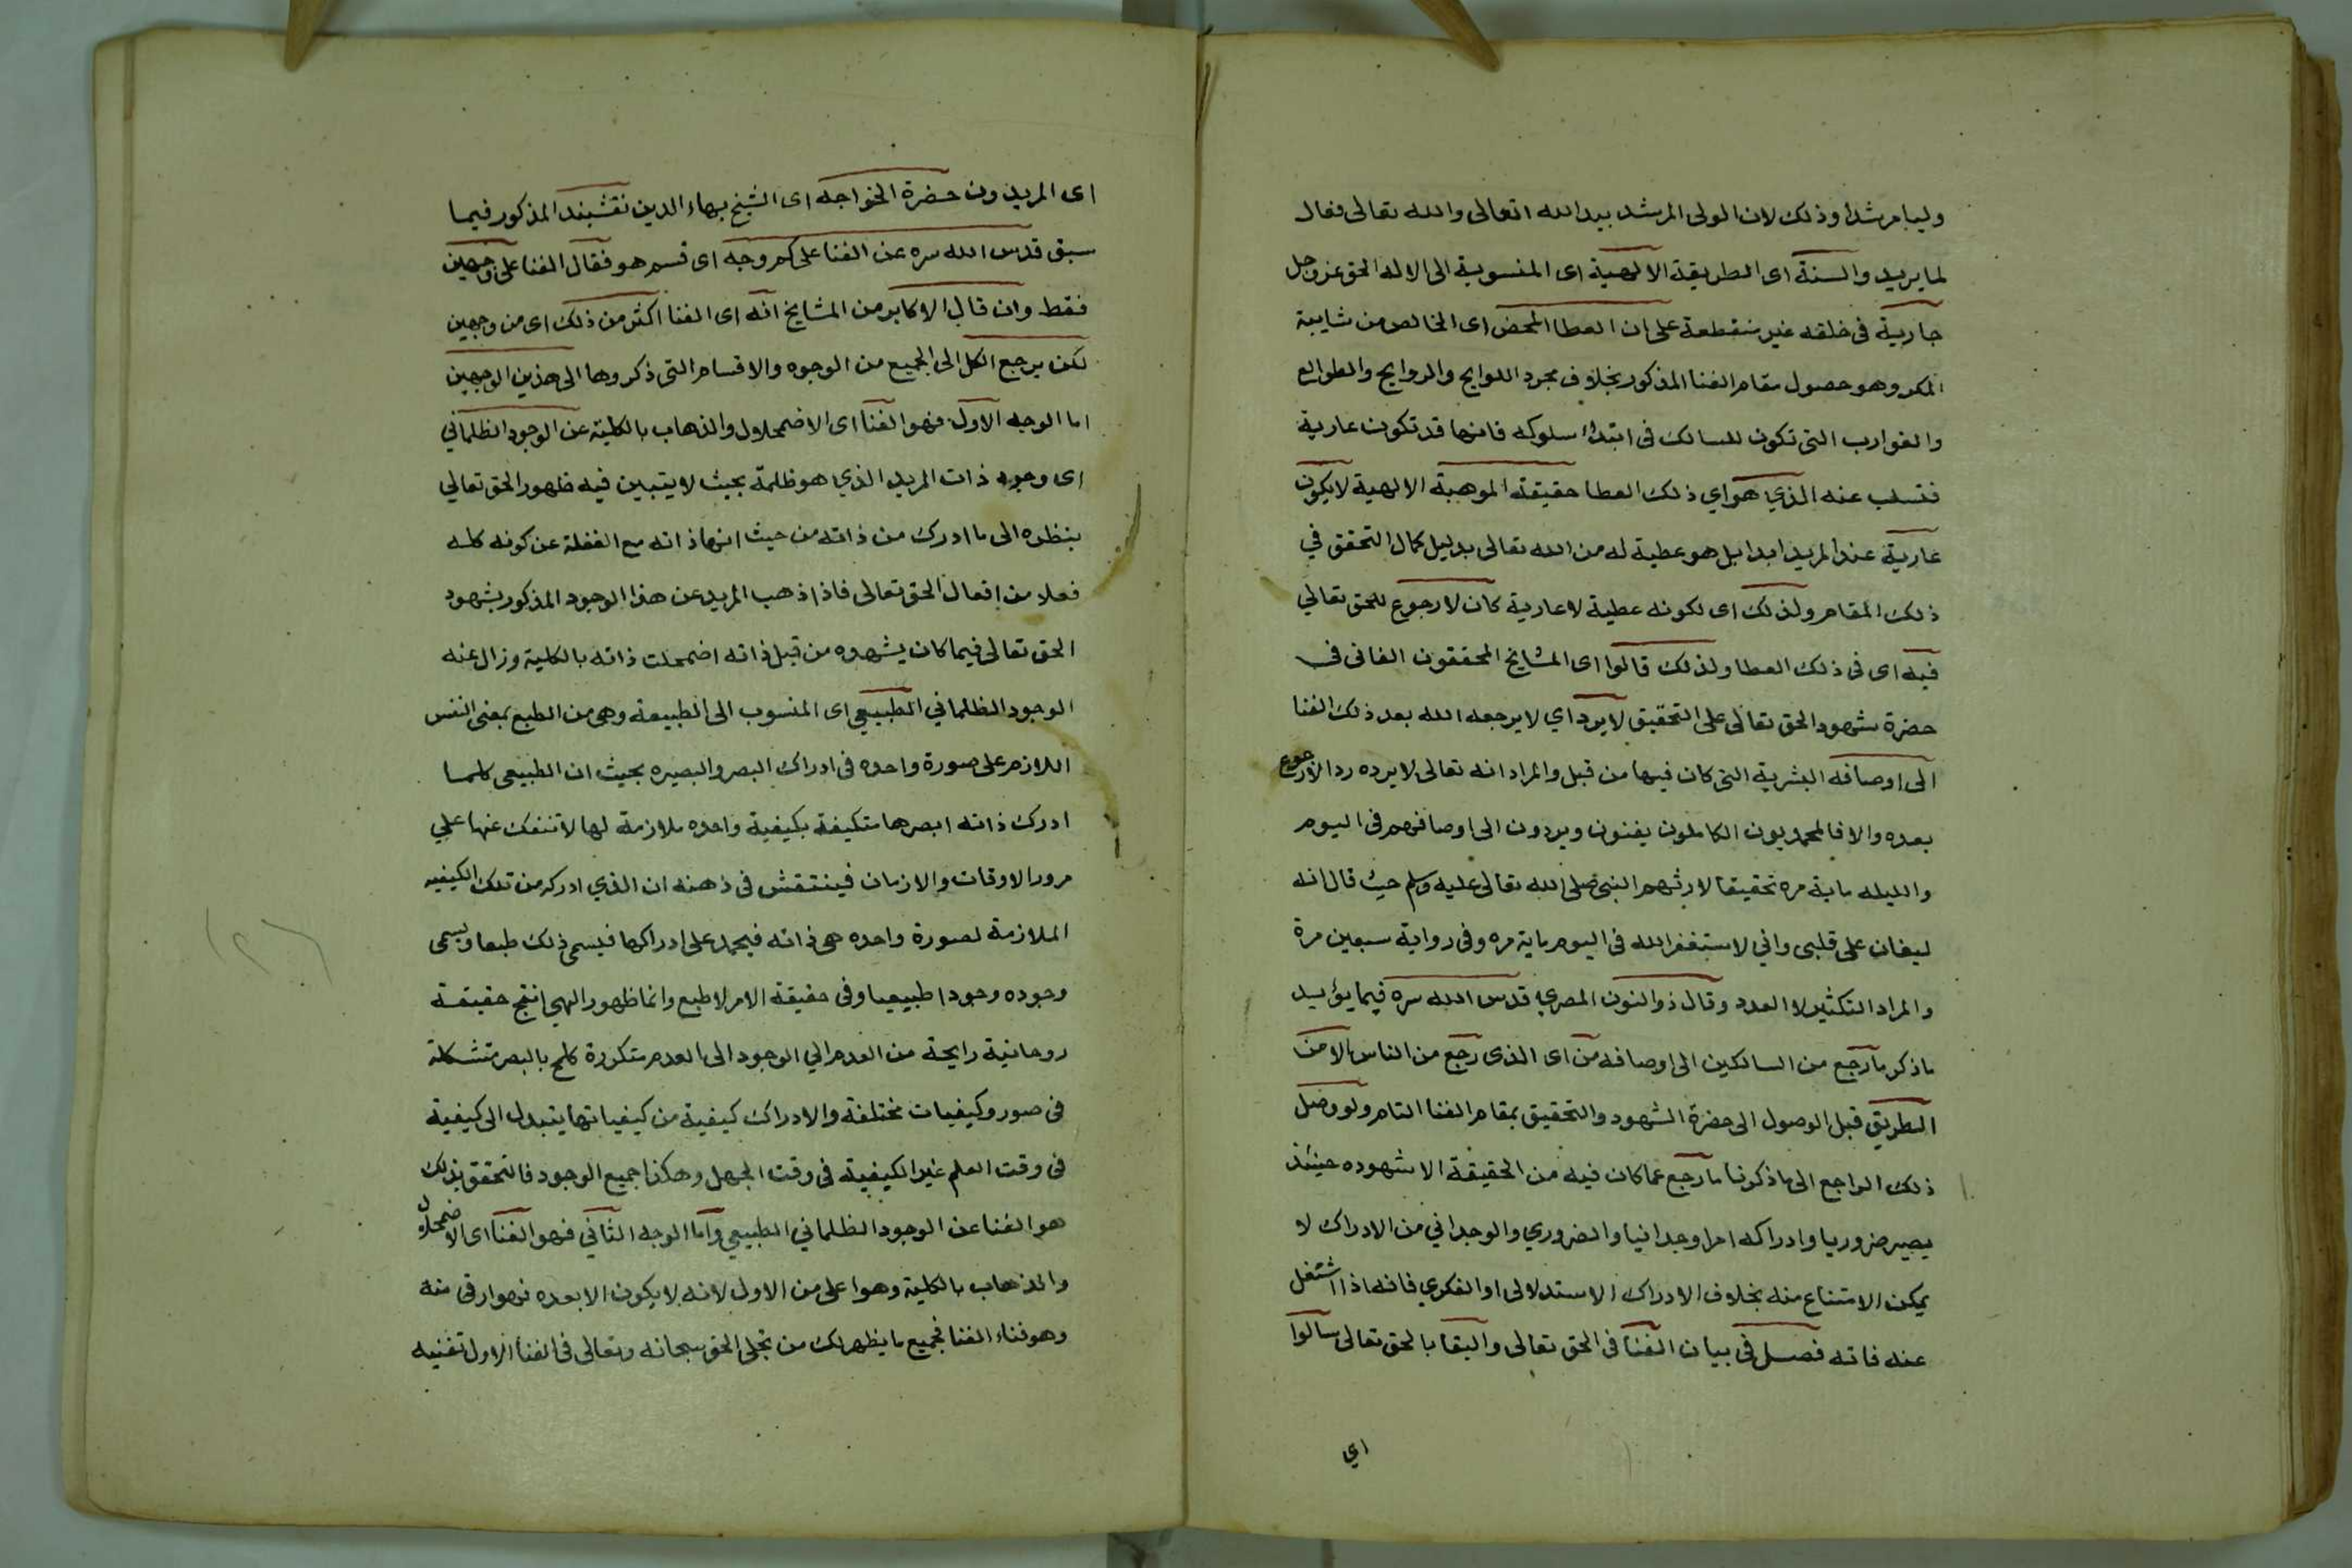 وليا مرشدا وذلك لان الولى المرشد بيد الله تعالى والله تعالى فعال
لما يريد والسنة اى الطريقة الالهية اى المنسوبة الى الاله الحق عز وجل
جارية فى خلقه غير منقطعة على ان العطا المحض اى الخالص من شايبة
المكر وهو حصول مقام الفنا المذكور بخلاف مجرد اللوايح والروايح والطوالع
والغوارب التى تكون للسالك فى ابتداء سلوكه فانها قد تكون عارية
فتسلب عنه الذي هو اي ذلك العطا حقيقة الموهبة الالهية لا يكون
عارية عند المريد ابدا بل هو عطية له من الله تعالى بدليل كمال التحقق في
ذلك المقام ولذلك اى لكونه عطية لا عارية كان لا رجوع للحق تعالي
فيه اى فى ذلك العطا ولذلك قالوا اى المشايخ المحققون الفانى فى
حضرة شهود الحق تعالى على التحقيق لا يرد اي لا يرجعه الله بعد ذلك الفنا
الى اوصافه البشرية التى كان فيها من قبل والمراد انه تعالى لا يرده ردا لا رجوع
بعده والا فالمحمديون الكاملون يفنون ويردون الى اوصافهم فى اليوم
والليله ماية مره تحقيقا لارثهم النبى صلى الله تعالى عليه وسلم حيث قال انه
ليغان على قلبى واني لاستغفر الله فى اليوم ماية مره وفى رواية سبعين مرة
والمراد التكثير لا العدد وقال ذو النون المصري قدس الله سره فيما يؤيد
ما ذكر ما رجع من السالكين الى اوصافه من اى الذى رجع من الناس الا من
الطريق قبل الوصول الى حضرة الشهود والتحقيق بمقام الفنا التام ولو وصل
ذلك الراجع الى ما ذكرنا ما رجع عما كان فيه من الحقيقة الا شهوده حينئذ
يصير ضروريا وادراكه امرا وجدانيا والضروري والوجداني من الادراك لا
يمكن الامتناع منه بخلاف الادراك الاستدلالى او الفكري فانه اذا اشتغل
عنه فاته فصل فى بيان الفنا فى الحق تعالى والبقا بالحق تعالى سالوا
اي
اى المريدون حضرة الخواجه اى الشيخ بهاء الدين نقشبند المذكور فيما
سبق قدس الله سره عن الفنا على كم وجه اى قسم هو فقال الفنا على وجهين
فقط وان قال الاكابر من المشايخ انه اى الفنا اكثر من ذلك اى من وجهين
لكن يرجع الكل الى الجميع من الوجوه والاقسام التى ذكروها الى هذين الوجهين
اما الوجه الاول فهو الفنا اى الاضمحلال والذهاب بالكلية عن الوجود الظلماني
اى وجود ذات المريد الذي هو ظلمة بحيث لا يتبين فيه ظهور الحق تعالي
بنظره الى ما ادرك من ذاته من حيث انها ذاته مع الغفلة عن كونه كله
فعلا من افعال الحق تعالى فاذا ذهب المريد عن هذا الوجود المذكور بشهود
الحق تعالى فيما كان يشهده من قبل ذاته اضمحلت ذاته بالكلية وزال عنه
الوجود الظلماني الطبيعي اى المنسوب الى الطبيعة وهى من الطبع بمعنى النفس
اللازم على صورة واحده فى ادراك البصر والبصيره بحيث ان الطبيعى كلما
ادرك ذاته ابصرها متكيفة بكيفية واحده ملازمة لها لا تنفك عنها علي
مرور الاوقات والازمان فينتقش فى ذهنه ان الذي ادركه من تلك الكيفيه
الملازمة لصورة واحده هى ذاته فيجمد على ادراكها فيسمى ذلك طبعا ويسمى
وجوده وجودا طبيعيا وفى حقيقة الامر لا طبع وانما ظهور الهي انتج حقيقة
روحانية رايحة من العدم الي الوجود الى العدم متكررة كلمح بالبصر متشكلة
فى صور وكيفيات مختلفة والادراك كيفية من كيفياتها يتبدل الى كيفية
فى وقت العلم غير الكيفية فى وقت الجهل وهكذا جميع الوجود فالتحقق بذلك
هو الفنا عن الوجود الظلماني الطبيعي واما الوجه الثاني فهو الفنا اى الاضمحلال
والذهاب بالكلية وهو اعلى من الاول لانه لا يكون الا بعده فهو ارقى منه
وهو فناء الفنا فجميع ما يظهر لك من تجلى الحق سبحانه وتعالى فى الفنا الاول تفنيه